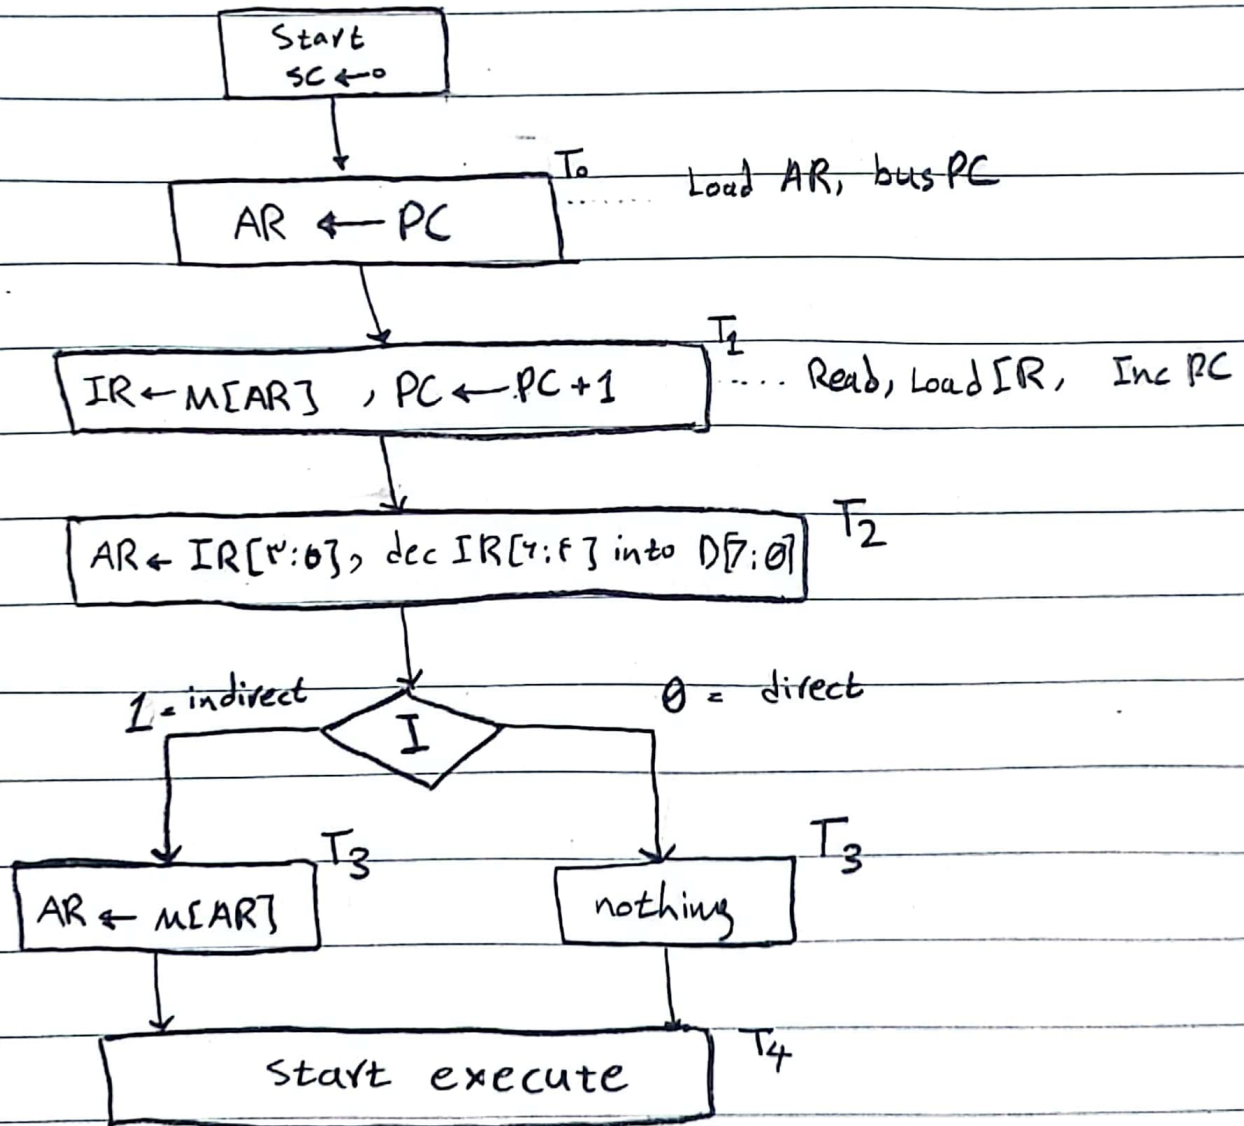 Start
SC ← 0
T0
Load AR, bus PC
AR ← PC
T1
IR ← M[AR] , PC ← PC + 1
Read, Load IR, Inc PC
T2
AR ← IR[۳:0], dec IR[۶:۴] into D[7:0]
1 = indirect
0 = direct
I
T3
T3
AR ← M[AR]
nothing
T4
Start execute